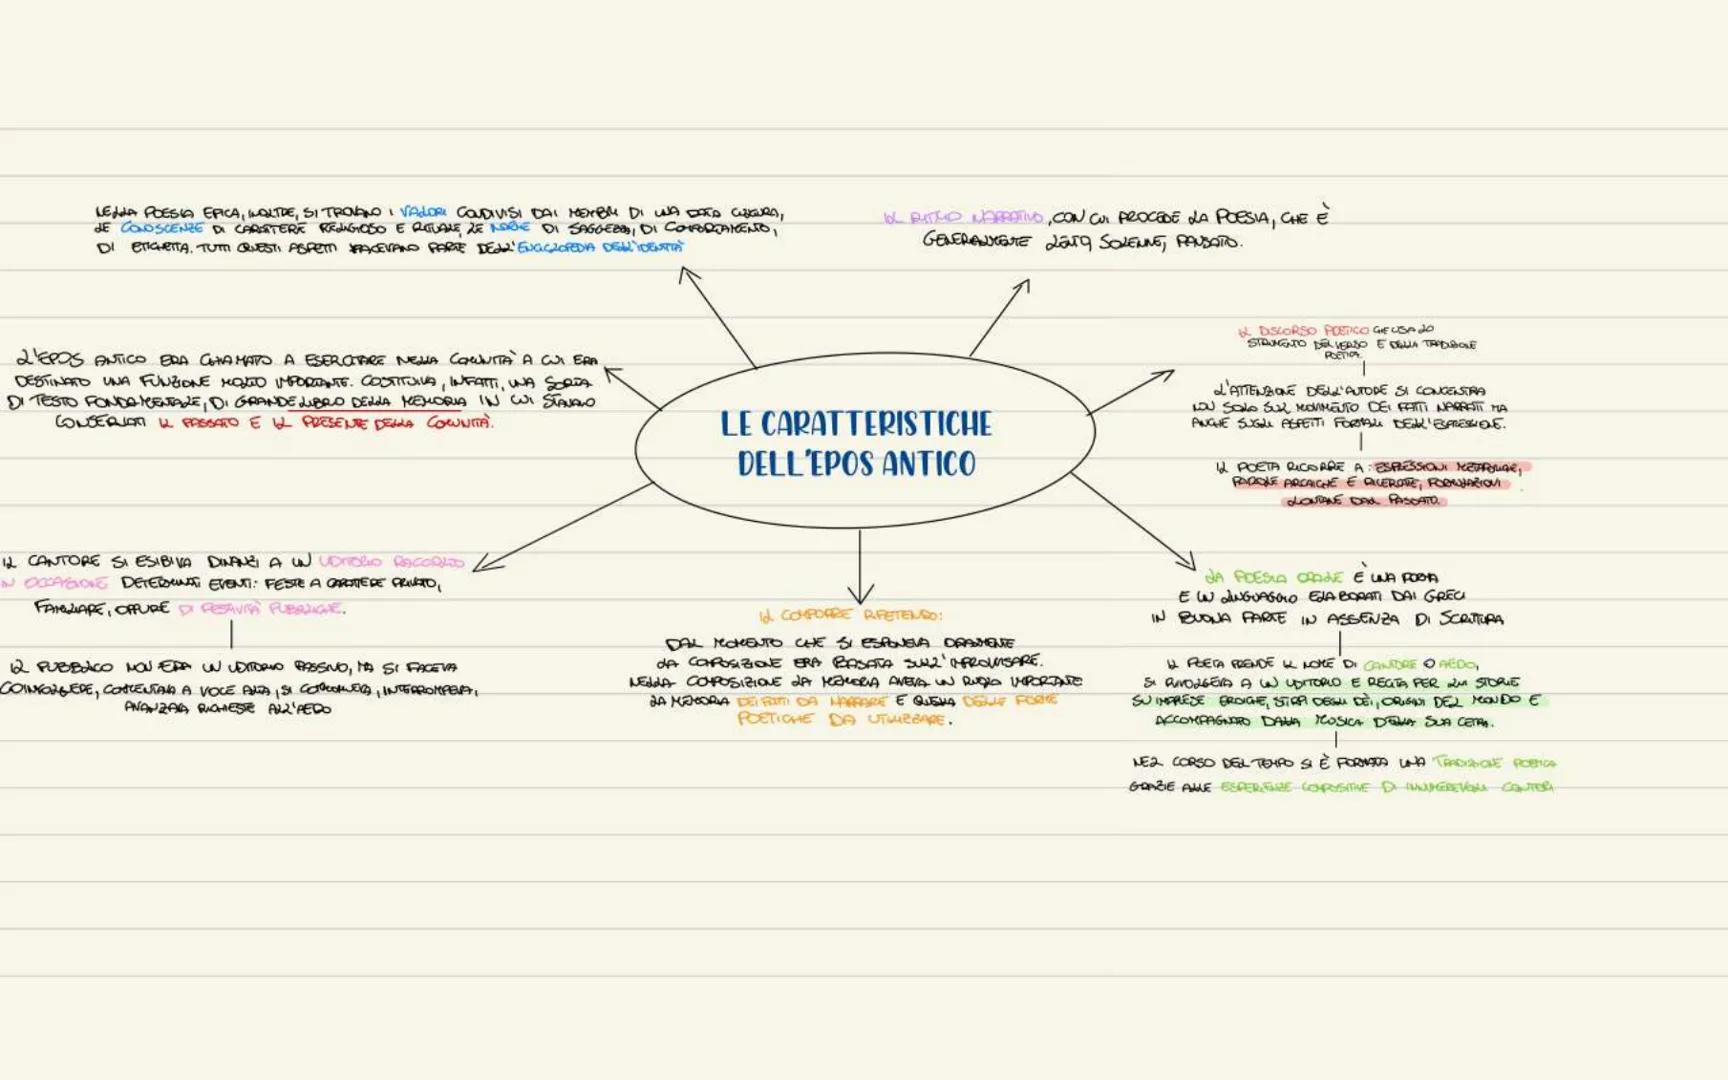 LE CARATTERISTICHE
DELL'EPOS ANTICO
NELLA POESIA EPICA, INOLTRE, SI TROVANO I VALORI CONDIVISI DAI MEMBRI DI UNA DATA CULTURA,
LE CONOSCENZE DI CARATTERE RELIGIOSO E RITUALE, LE NORME DI SAGGEZZA, DI COMPORTAMENTO,
DI ETICHETTA. TUTTI QUESTI ASPETTI FACEVANO PARTE DELL'ENCICLOPEDIA DELL'IDENTITÀ
IL RITMO NARRATIVO, CON CUI PROCEDE LA POESIA, CHE È
GENERALMENTE LENTO, SOLENNE, PAUSATO.
L'EPOS ANTICO ERA CHIAMATO A ESERCITARE NELLA COMUNITÀ A CUI ERA
DESTINATO UNA FUNZIONE MOLTO IMPORTANTE. COSTITUIVA, INFATTI, UNA SORTA
DI TESTO FONDAMENTALE, DI GRANDE LIBRO DELLA MEMORIA IN CUI STAVANO
CONSERVATI IL PASSATO E IL PRESENTE DELLA COMUNITÀ.
IL DISCORSO POETICO CHE USA LO
STRUMENTO DEL VERSO E DELLA TRADIZIONE
POETICA.
L'ATTENZIONE DELL'AUTORE SI CONCENTRA
NON SOLO SUL MOVIMENTO DEI FATTI NARRATI MA
ANCHE SUGLI ASPETTI FORMALI DELL'ESPRESSIONE.
IL POETA RICORRE A: ESPRESSIONI METAFORICHE,
PAROLE ARCAICHE E RICERCATE, FORMULAZIONI
LONTANE DAL PASSATO.
IL CANTORE SI ESIBIVA DINANZI A UN UDITORIO RACCOLTO
IN OCCASIONE DETERMINATI EVENTI: FESTE A CARATTERE PRIVATO,
FAMILIARE, OPPURE DI FESTIVITÀ PUBBLICHE.
IL PUBBLICO NON ERA UN UDITORIO PASSIVO, MA SI FACEVA
COINVOLGERE, COMMENTAVA A VOCE ALTA, SI COMMUOVEVA, INTERROMPEVA,
AVANZAVA RICHIESTE ALL'AEDO
IL COMPORRE RIPETENDO:
DAL MOMENTO CHE SI ESPONEVA ORALMENTE
LA COMPOSIZIONE ERA BASATA SULL'IMPROVVISARE.
NELLA COMPOSIZIONE LA MEMORIA AVEVA UN RUOLO IMPORTANTE
LA MEMORIA DEI FATTI DA NARRARE E QUELLA DELLE FORME
POETICHE DA UTILIZZARE.
LA POESIA ORALE È UNA FORMA
E UN LINGUAGGIO ELABORATI DAI GRECI
IN BUONA PARTE IN ASSENZA DI SCRITTURA
IL POETA PRENDE IL NOME DI CANTORE O AEDO,
SI RIVOLGEVA A UN UDITORIO E RECITA PER LUI STORIE
SU IMPRESE EROICHE, STIRPI DEGLI DÈI, ORIGINI DEL MONDO E
ACCOMPAGNATO DALLA MUSICA DELLA SUA CETRA.
NEL CORSO DEL TEMPO SI È FORMATA UNA TRADIZIONE POETICA
GRAZIE ALLE ESPERIENZE COMPOSITIVE DI INNUMEREVOLI CANTORI